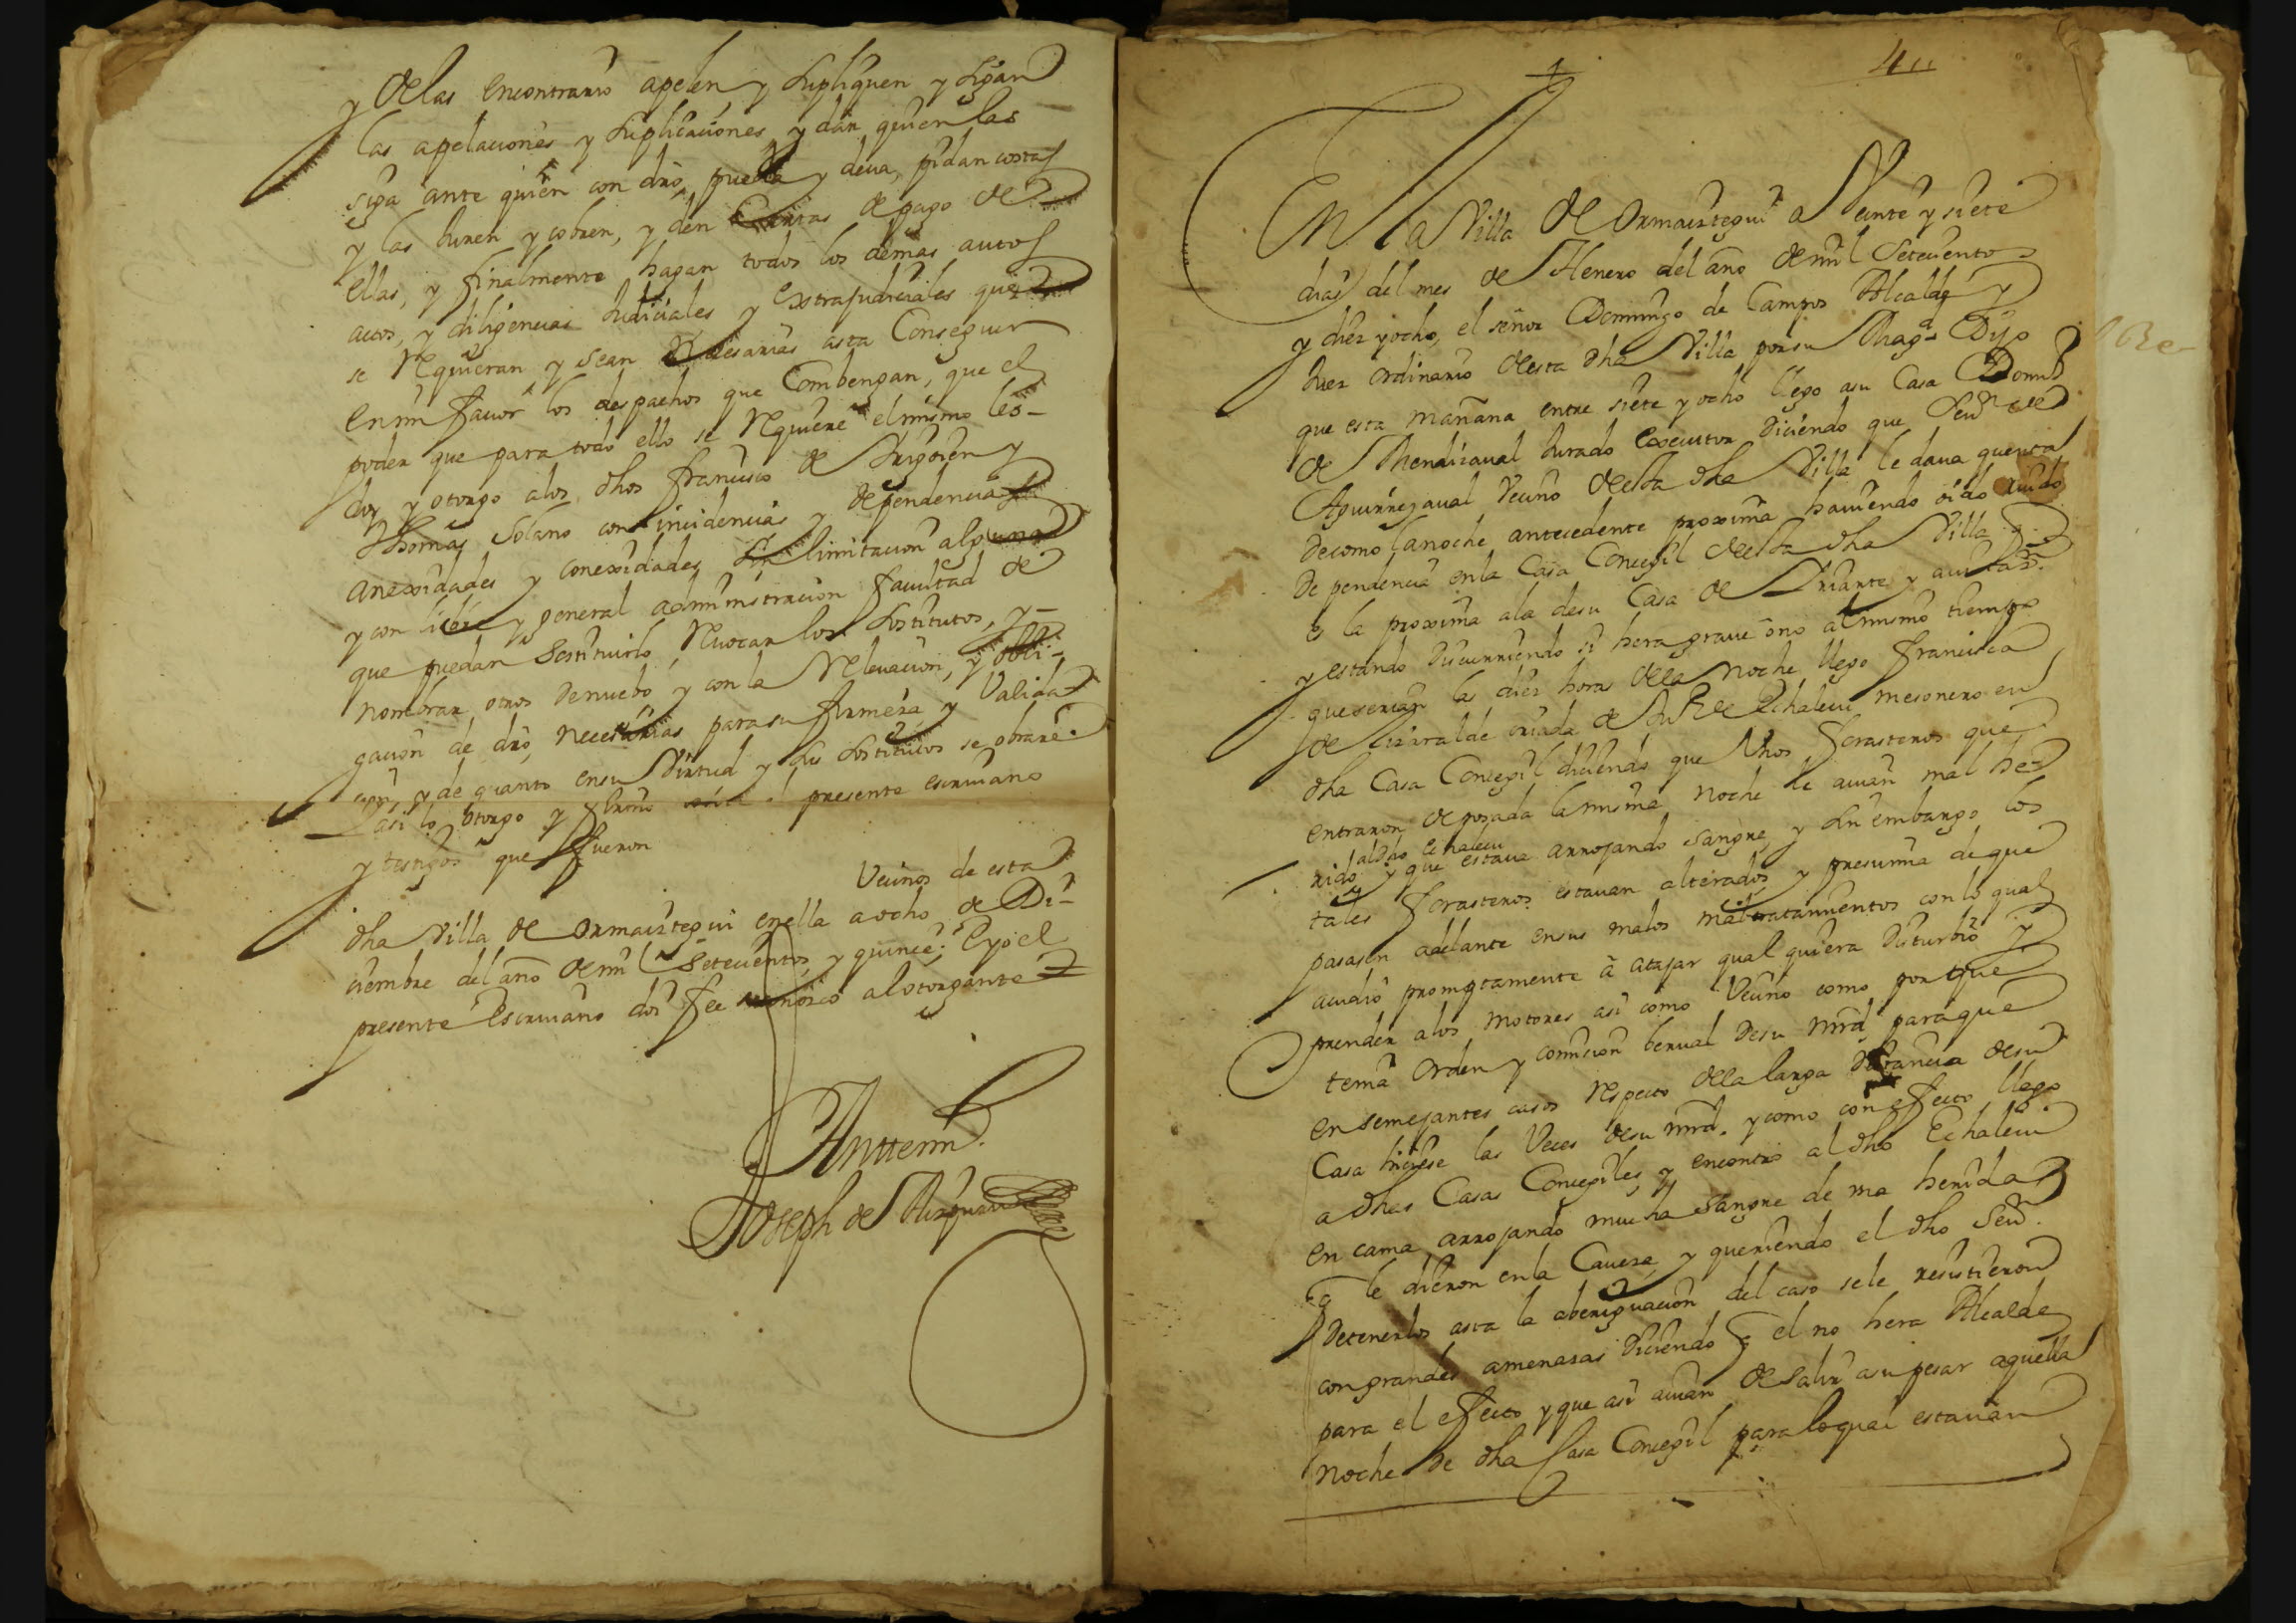 y de las encontrario apelen y supliquen y sigan
las apelaciones y suplicaciones y dan quien las
siga ante quien con dro pueda y deua, pidan costas
y las juren y cobren, y den Cartas de pago de
ellas, y finalmente hagan todos los demas autos
actos, y diligencias Judiciales y extrajudiciales que
se Requieran y sean Nesesarias asta Conseguir
en mi fauor los despachos que Combengan, que el
poder que para todo ello se Requiere el mismo les
doy y otorgo alos dhos francisco de Yrigoien y
Thomas Solano con incidencias y dependencias
anexidades y conexidades sin limitacion alguna
y con libre y general administracion facultad de
que puedan sostituirlo, Reuocar los sostitutos, y
nombrar otros de nuebo, y con la Releuacion, y obli-
gacion de dro necesarias para su firmeza y Valida-
cion y de quanto en su Virtud y sus sostitutos se obrare.
Y asi lo otorgo y firmo el presente escriuano
y testigos que fueron
Vecinos de esta
dha Villa de Ormaiztegui en ella a ocho de Di-
ciembre del año de mil Setecientos y quince; E yo el
presente Escriuano doi fee conozco al otorgante
Antemi.
Joseph de
4
En la Villa de Ormaiztegui a Veinte y siete
dias del mes de Henero del año de mil Setecientos
y diez y ocho, el señor Domingo de Campos Alcalde y
Juez ordinario desta dha Villa por su Magd Dijo
que esta mañana entre siete y ocho llego a su Casa Domingo
de Mendizaual Jurado executor diciendo que Seuan de
Aguirrezaual Vecino desta dha Villa le daua quenta
de como la noche antecedente proxima hauiendo oido ruido
de pendencia en la Casa Concegil desta dha Villa q
es la proxima ala de su Casa de Yriarte y auitazn.
y estando discurriendo si hera graue ono al mismo tiempo
que serian las diez horas dela noche llego francisca
de Lizaralde criada de Juo de Echalecu mesonero en
dha Casa Concegil diciendo que Unos forasteros que
entraron de posada la misma noche le auian mal he-
al dho Echalecu
rido y que estaua arrojando sangre, y sin embargo los
tales forasteros estauan alterados y presumia de que
pasasen adelante en sus malos maltratamientos con lo qual
acudio promptamente à atajar qual quiera disturbio y
prender alos motores asi como Vecino como porque
tenia orden y comision berual de su mrd para que
en semejantes casos respecto dela larga distancia de su
Casa hiciese las Veces de su mrd. y como con efecto llego
a dhas Casas Concegiles, y encontro al dho Echalecu
en cama arrojando mucha sangre de una herida
q le dieron en la Caueza, y queriendo el dho Seun.
detenerlos asta la aberiguacion del caso se le resistieron
con grandes amenazas diciendo q el no hera Alcalde
para el efecto y que asi auian de salir a su pesar aquella
noche de dha Casa Concegil para lo qual estauan